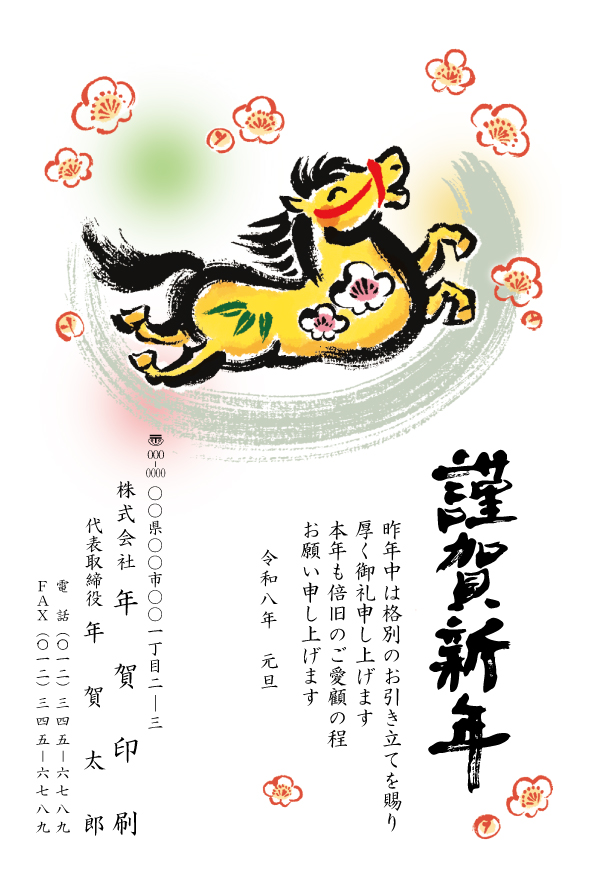 謹賀新年
昨年中は格別のお引き立てを賜り
厚く御礼申し上げます
本年も倍旧のご愛顧の程
お願い申し上げます
令和八年　元旦
〒000-0000
〇〇県〇〇市〇〇一丁目二―三
株式会社 年賀印刷
代表取締役 年賀太郎
電話(〇一二)三四五―六七八九
FAX(〇一二)三四五―六七八九